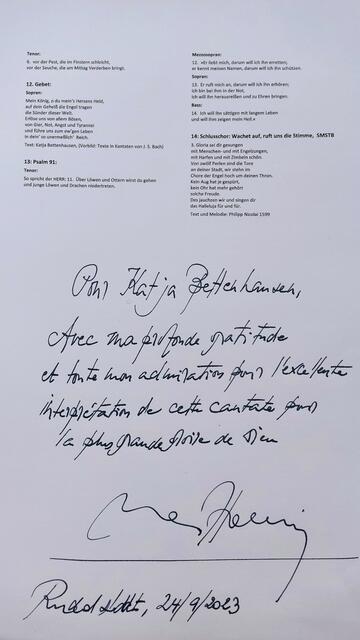 Tenor:
6. vor der Pest, die im Finstern schleicht,
vor der Seuche, die am Mittag Verderben bringt.
12. Gebet:
Sopran:
Mein König, o du mein's Herzens Held,
auf dein Geheiß die Engel tragen
die Sünder dieser Welt.
Erlöse uns von allem Bösen,
von Gier, Not, Angst und Tyrannei
und führe uns zum ew'gen Leben
in dein' so unermeßlich' Reich.
Text: Katja Bettenhausen, (Vorbild: Texte in Kantaten von J. S. Bach)
13: Psalm 91:
Tenor:
So spricht der HERR: 11. Über Löwen und Ottern wirst du gehen
und junge Löwen und Drachen niedertreten.
Mezzosopran:
12. »Er liebt mich, darum will ich ihn erretten;
er kennt meinen Namen, darum will ich ihn schützen.
Sopran:
13. Er ruft mich an, darum will ich ihn erhören;
Ich bin bei ihm in der Not,
Ich will ihn herausreißen und zu Ehren bringen.
Bass:
14. Ich will ihn sättigen mit langem Leben
und will ihm zeigen mein Heil.«
14: Schlusschor: Wachet auf, ruft uns die Stimme, SMSTB
3. Gloria sei dir gesungen
mit Menschen- und mit Engelzungen,
mit Harfen und mit Zimbeln schön.
Von zwölf Perlen sind die Tore
an deiner Stadt, wir stehn im
Chore der Engel hoch um deinen Thron.
Kein Aug hat je gespürt,
kein Ohr hat mehr gehört
solche Freude.
Des jauchzen wir und singen dir
das Halleluja für und für.
Text und Melodie: Philipp Nicolai 1599
Pour Katja Bettenhausen,
Avec ma profonde gratitude
et toute mon admiration pour l'excellente
interprétation de cette cantate pour
la plus grande gloire de Dieu
24/9/2023